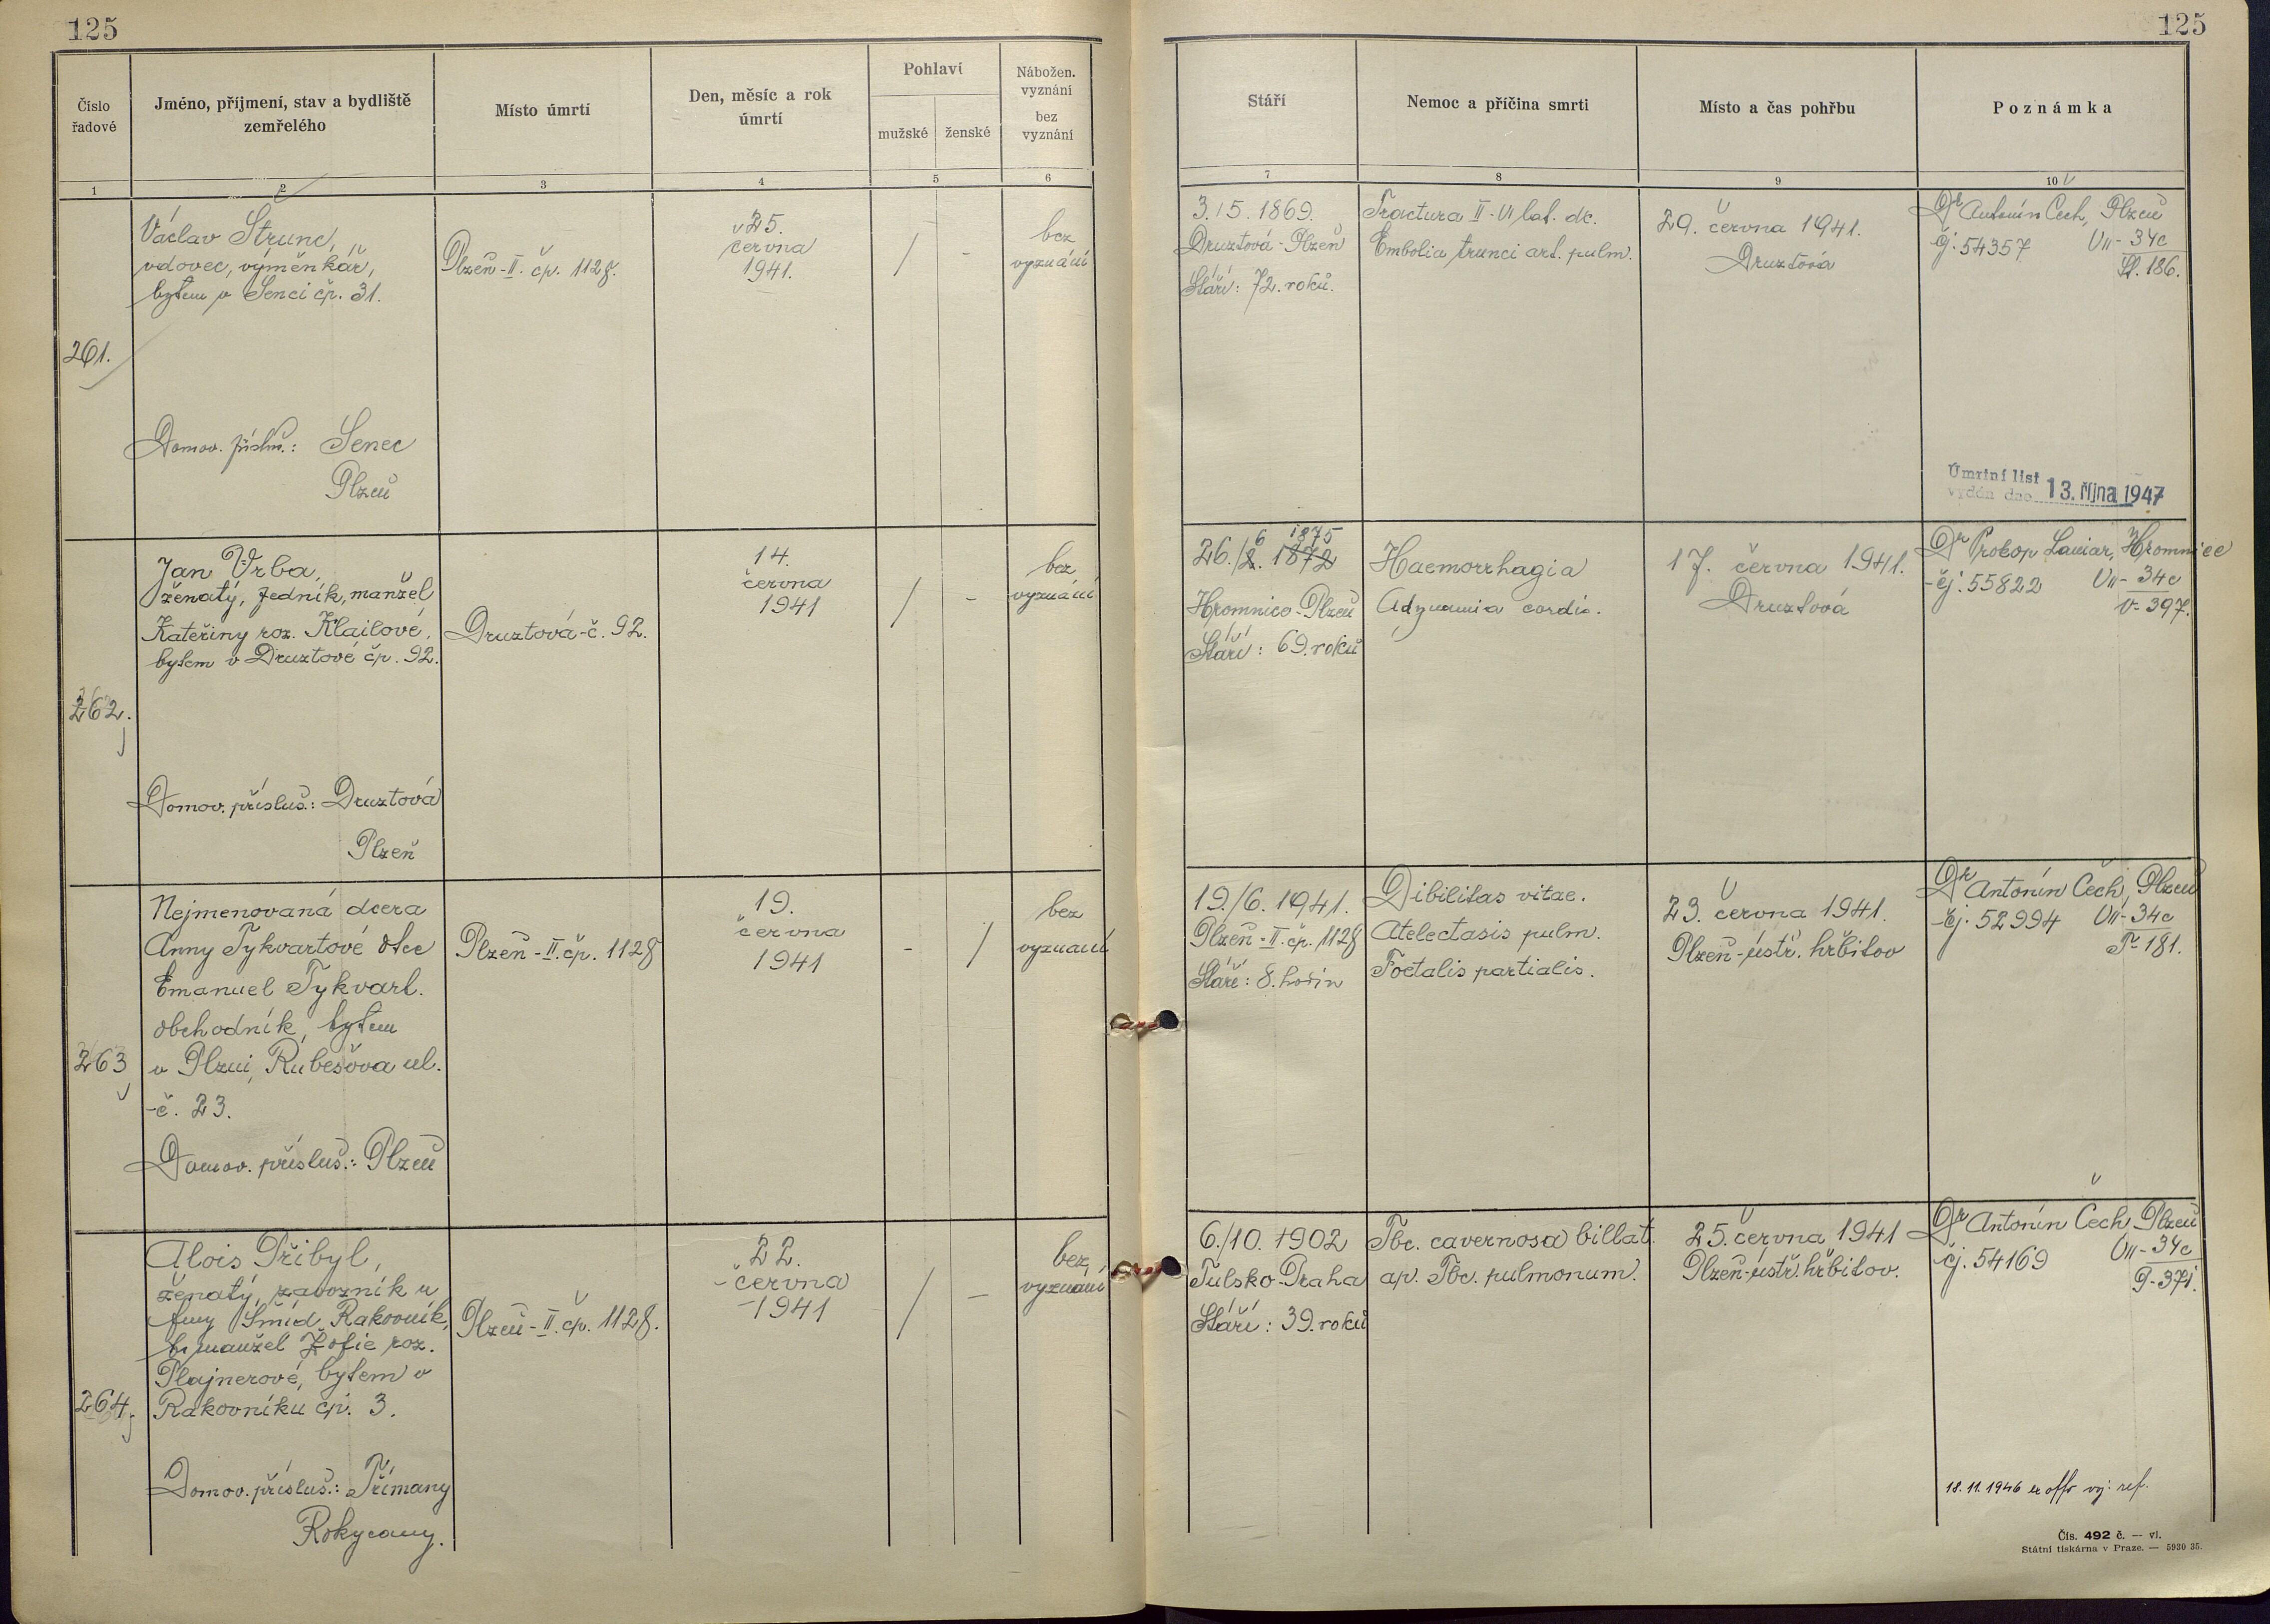 125
125
Číslo
řadové
Jméno, příjmení, stav a bydliště
zemřelého
Místo úmrtí
Den, měsíc a rok
úmrtí
Pohlaví
mužské
ženské
Nábožen.
vyznání
bez
vyznání
Stáří
Nemoc a příčina smrti
Místo a čas pohřbu
Poznámka
1
2
3
4
5
6
7
8
9
10
261.
Václav Strunc,
vdovec, výměnkář,
bytem v Senci čp. 31.
Domov. přísluš.: Senec
Plzeň
Plzeň-II. čp. 1128.
25.
června
1941.
/
-
bez
vyznání
3./5. 1869.
Druztová-Plzeň
Stáří: 72. roků.
Fractura II-VI lat. dc.
Embolia trunci art. pulm.
29. června 1941.
Druztová
Dr Antonín Čech, Plzeň
čj. 54357 VII-34c
St. 186.
Úmrtní list
vydán dne 13. října 1947
262.
Jan Vrba,
ženatý, zedník, manžel
Kateřiny roz. Klailové,
bytem v Druztové čp. 92.
Domov. přísluš.: Druztová
Plzeň
Druztová-č. 92.
14.
června
1941
/
-
bez
vyznání
6 1875
26./2. 1872
Hromnice-Plzeň
Stáří: 69. roků
Haemorrhagia
Adynamia cordis.
17. června 1941.
Druztová
Dr Prokop Laviar, Hromnice
čj. 55822 VII-34c
V-397.
263
Nejmenovaná dcera
Anny Tykvartové otce
Emanuel Tykvart.
obchodník, bytem
v Plzni, Rubešova ul.
č. 23.
Domov. přísluš.: Plzeň
Plzeň-II. čp. 1128
19.
června
1941
-
/
bez
vyznání
19./6. 1941.
Plzeň-II. čp. 1128
Stáří: 8. hodin
Dibilitas vitae.
Atelectasis pulm.
Foetalis partialis.
23. června 1941.
Plzeň-ústř. hřbitov
Dr Antonín Čech, Plzeň
čj. 52994 VII-34c
T-181.
264.
Alois Přibyl,
ženatý, závozník u
fmy Šmíd, Rakovník,
manžel Žofie roz.
Plajnerové, bytem v
Rakovníku čp. 3.
Domov. přísluš.: Třímany
Rokycany.
Plzeň-II. čp. 1128.
22.
června
1941
/
-
bez
vyznání
6./10. 1902
Tulsko-Praha
Stáří: 39. roků
Tbc. cavernosa billat.
ap. Tbc. pulmonum.
25. června 1941
Plzeň-ústř. hřbitov.
Dr Antonín Čech, Plzeň
čj. 54169 VII-34c
P-371.
18. 11. 1946 ex offo
Čís. 492 č. — vl.
Státní tiskárna v Praze. — 5930 35.